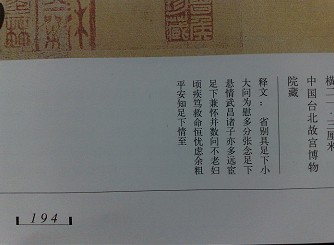 三厘米
中国台北故宫博物
院藏
释文：省别具足下小
大问为慰多分张念足下
悬情武昌诸子亦多远宦
足下兼怀并数问不老妇
顷疾笃救命恒忧虑余粗
平安知足下情至
194